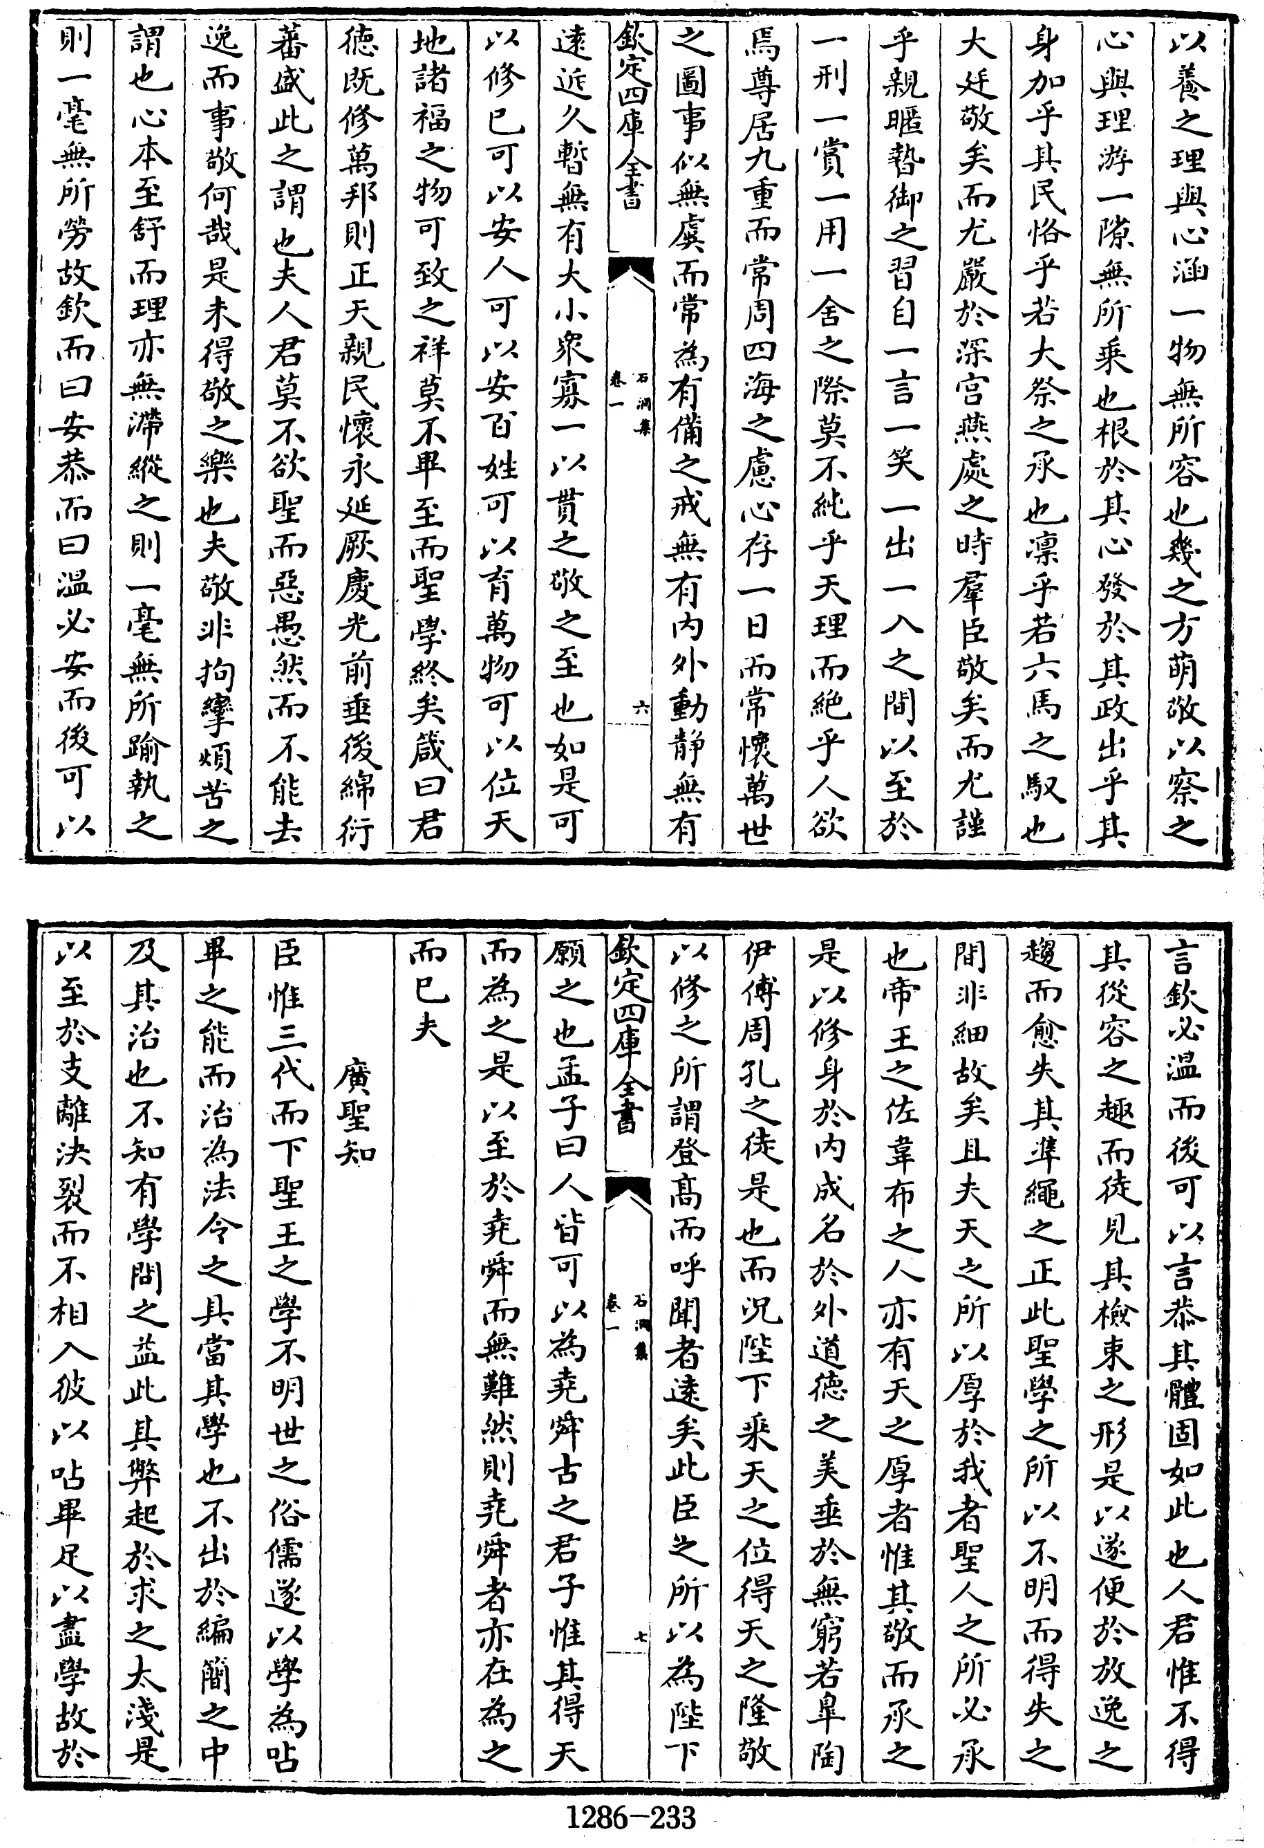 以養之理與心涵一物無所容也幾之方萌敬以察之
心與理游一隙無所乘也根於其心發於其政出乎其
身加乎其民恪乎若大祭之承也凛乎若六馬之馭也
大廷敬矣而尤嚴於深宫燕處之時羣臣敬矣而尤謹
乎親暱褻御之習自一言一笑一出一入之間以至於
一刑一賞一用一舍之際莫不純乎天理而絶乎人欲
焉尊居九重而常周四海之慮心存一日而常懷萬世
之圖事似無虞而常為有備之戒無有内外動静無有
欽定四庫全書
石洞集
卷一
六
遠近久暫無有大小衆寡一以貫之敬之至也如是可
以修已可以安人可以安百姓可以育萬物可以位天
地諸福之物可致之祥莫不畢至而聖學終矣箴曰君
德既修萬邦則正天親民懷永延厥慶光前垂後綿衍
蕃盛此之謂也夫人君莫不欲聖而惡愚然而不能去
逸而事敬何哉是未得敬之樂也夫敬非拘攣煩苦之
謂也心本至舒而理亦無滯縱之則一毫無所踰執之
則一毫無所勞故欽而曰安恭而曰温必安而後可以
言欽必温而後可以言恭其體固如此也人君惟不得
其從容之趣而徒見其檢束之形是以遂便於放逸之
趨而愈失其凖繩之正此聖學之所以不明而得失之
間非細故矣且夫天之所以厚於我者聖人之所必承
也帝王之佐韋布之人亦有天之厚者惟其敬而承之
是以修身於内成名於外道德之美垂於無窮若臯陶
伊傅周孔之徒是也而况陛下乘天之位得天之隆敬
以修之所謂登髙而呼聞者遠矣此臣之所以為陛下
欽定四庫全書
石洞集
卷一
七
願之也孟子曰人皆可以為堯舜古之君子惟其得天
而為之是以至於堯舜而無難然則堯舜者亦在為之
而已夫
廣聖知
臣惟三代而下聖王之學不明世之俗儒遂以學為呫
畢之能而治為法令之具當其學也不出於編簡之中
及其治也不知有學問之益此其弊起於求之太淺是
以至於支離決裂而不相入彼以呫畢足以盡學故於
1286-233